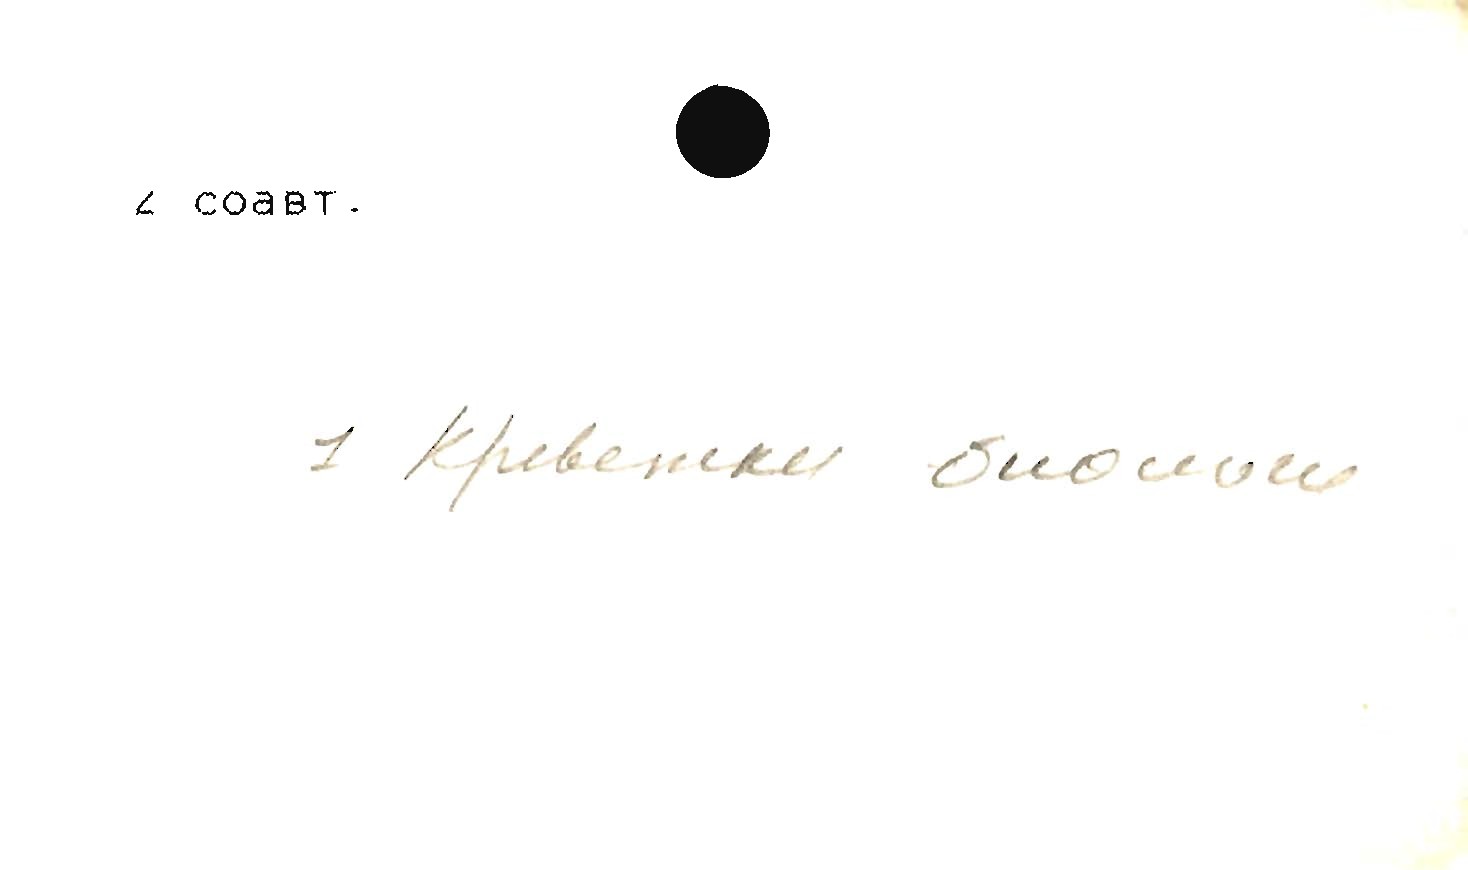 2 соавт.
1 Креветки биология